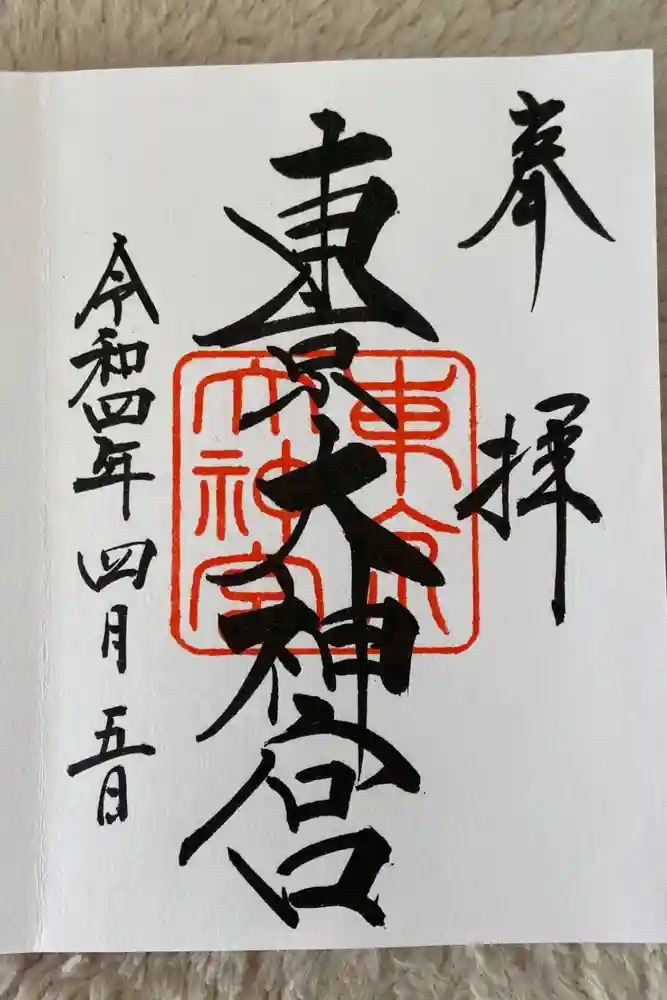 奉拝
東京大神宮
東京
大神宮
令和四年四月五日